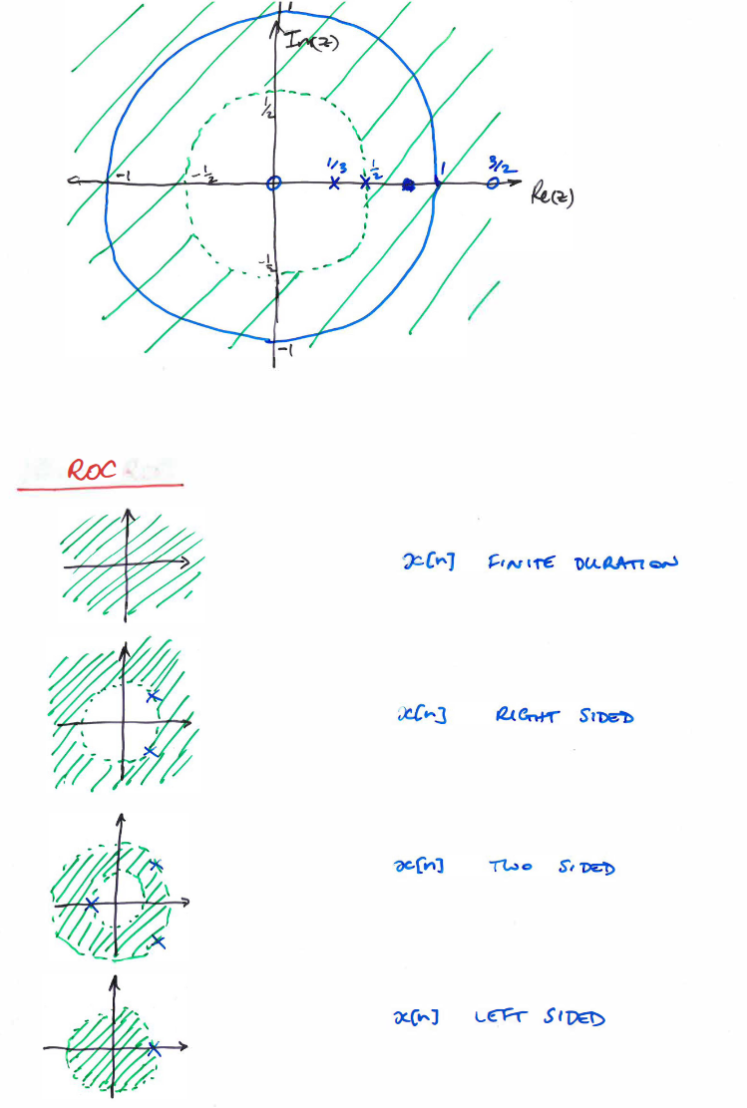 1
Im(z)
½
1/3 ½ 1 3/2
-1 -½
Re(z)
-½
-1
ROC
x[n] FINITE DURATION
x[n] RIGHT SIDED
x[n] TWO SIDED
x[n] LEFT SIDED